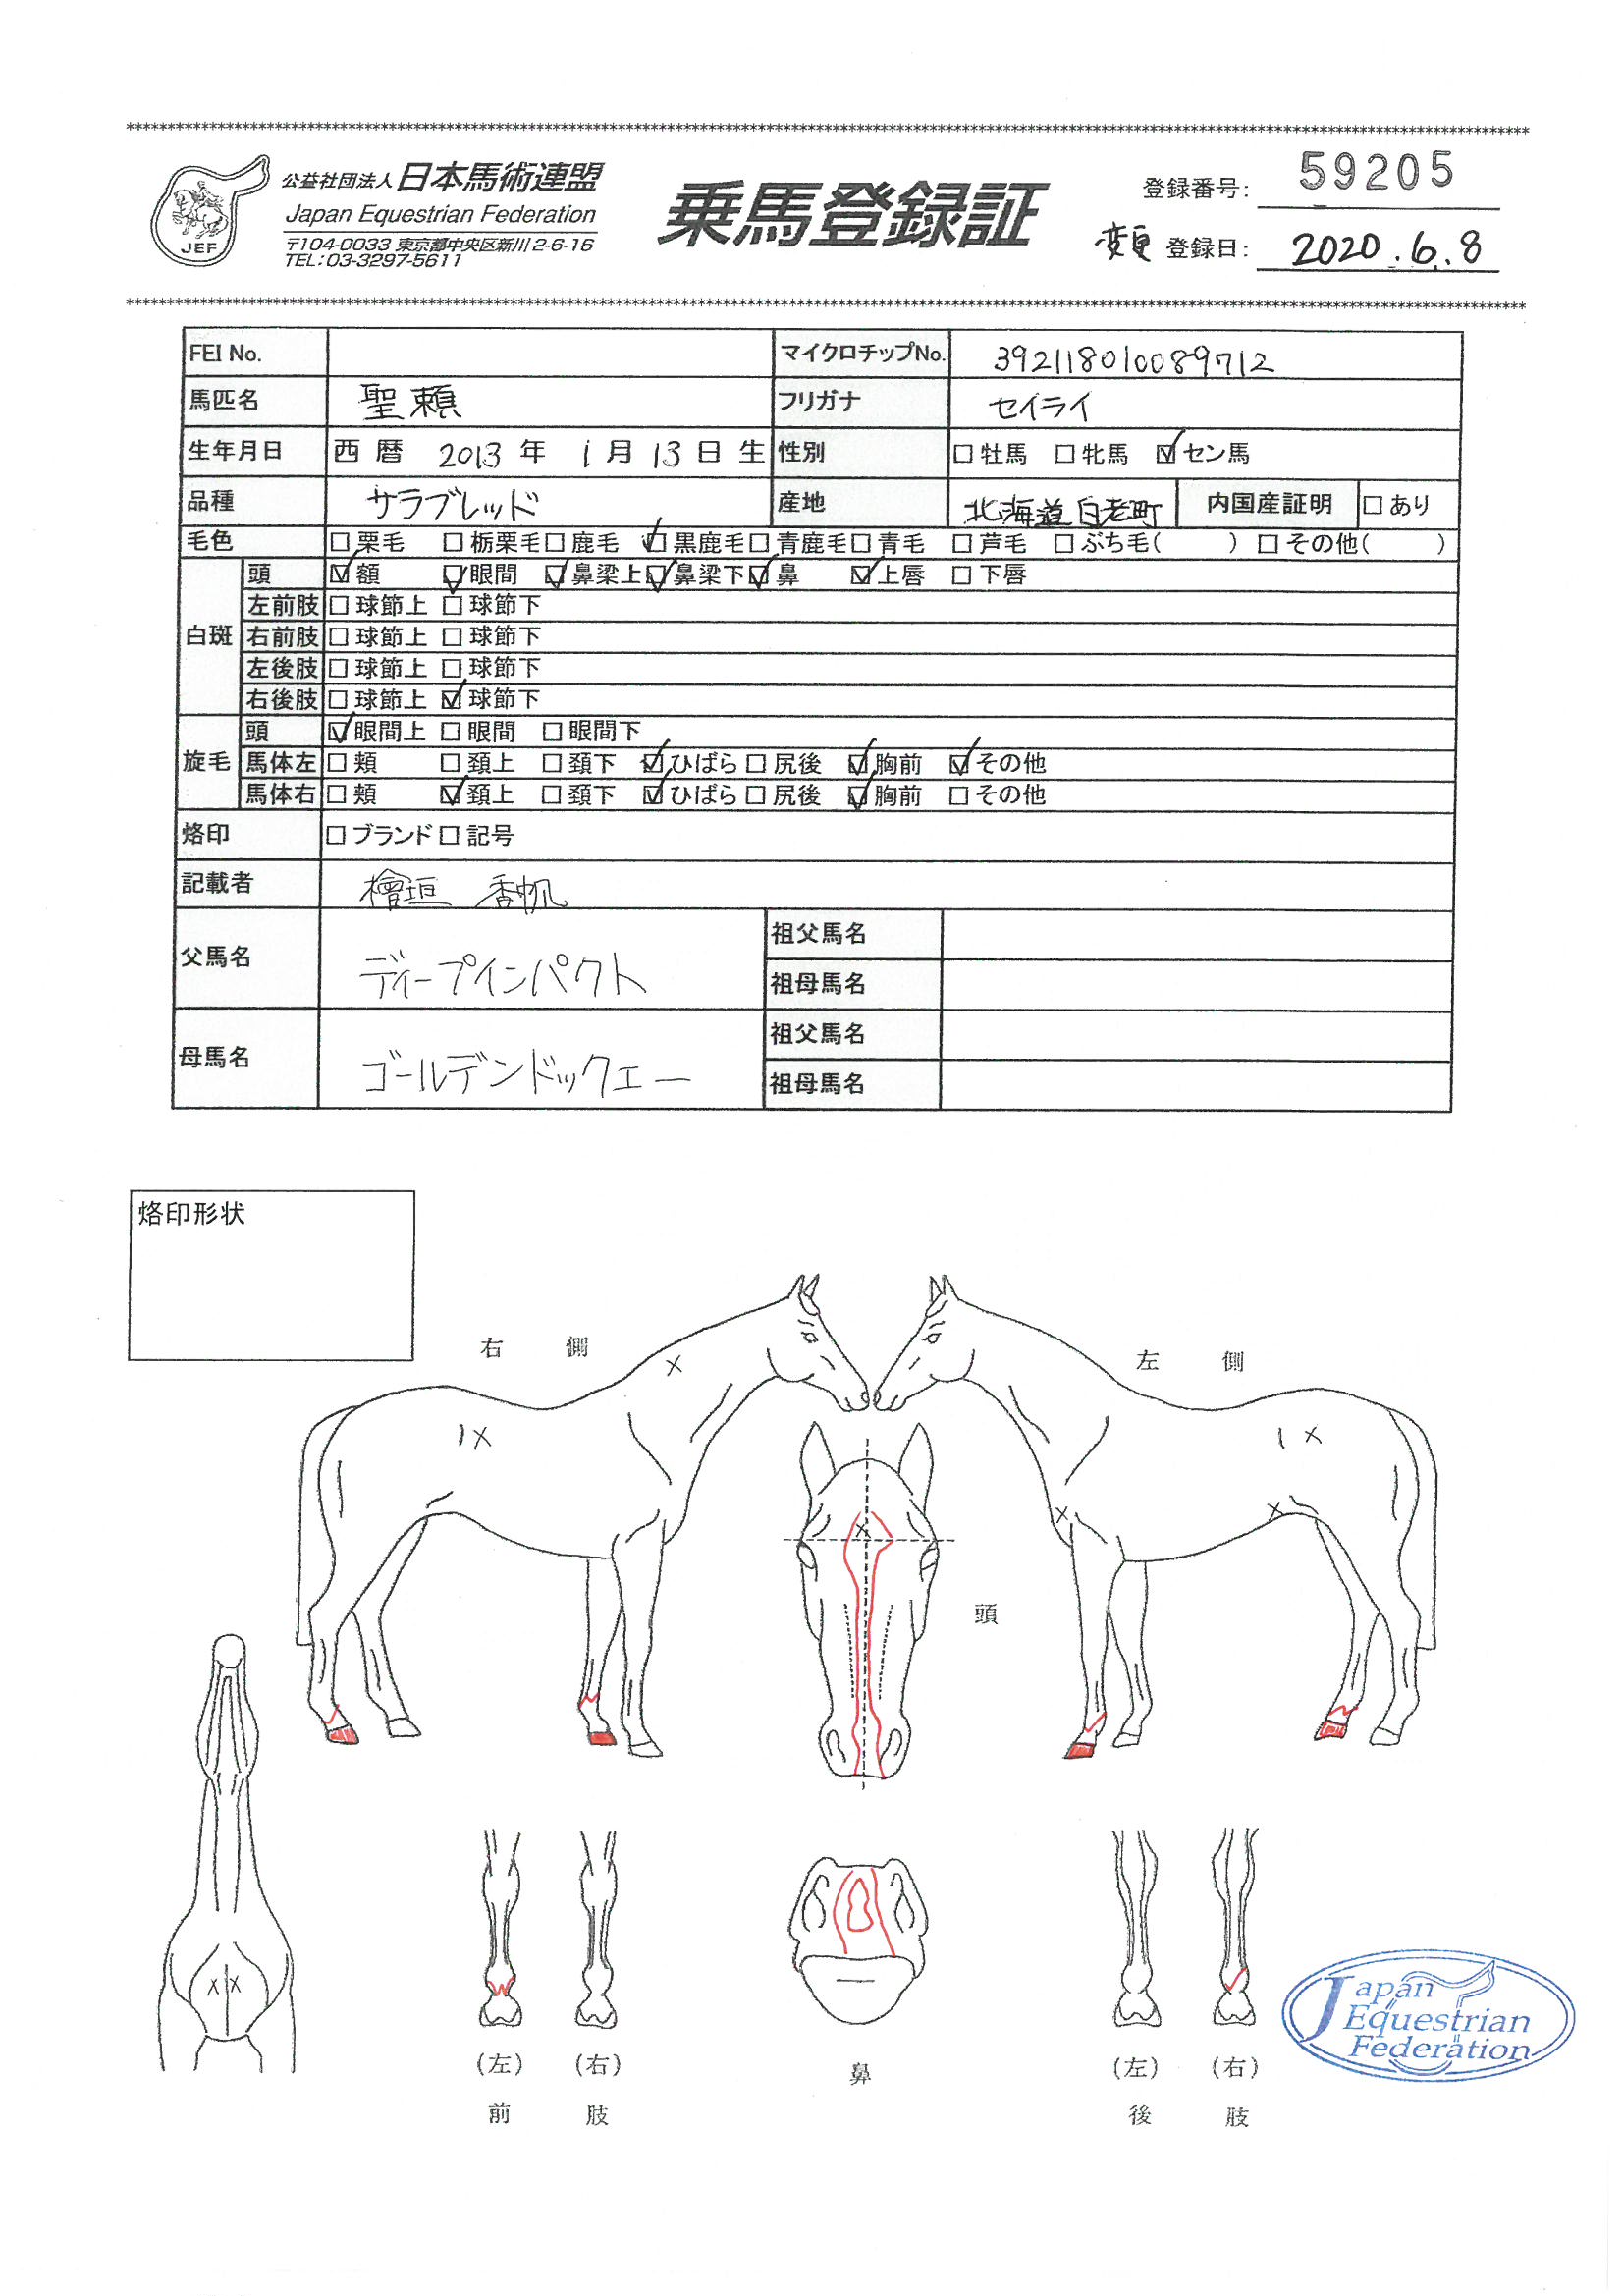 ************************************************************
公益社団法人日本馬術連盟
Japan Equestrian Federation
〒104-0033 東京都中央区新川2-6-16
TEL:03-3297-5611
JEF
乗馬登録証
登録番号: 59205
変更 登録日: 2020.6.8
************************************************************
FEI No. マイクロチップNo. 392118010089712
馬匹名 聖頼 フリガナ セイライ
生年月日 西暦 2013年 1月 13日生 性別 □牡馬 □牝馬 ☑セン馬
品種 サラブレッド 産地 北海道白老町 内国産証明 □あり
毛色 □栗毛 □栃栗毛 □鹿毛 ☑黒鹿毛 □青鹿毛 □青毛 □芦毛 □ぶち毛( ) □その他( )
白斑 頭 ☑額 ☑眼間 ☑鼻梁上 ☑鼻梁下 ☑鼻 ☑上唇 □下唇
左前肢 □球節上 □球節下
右前肢 □球節上 □球節下
左後肢 □球節上 □球節下
右後肢 □球節上 ☑球節下
旋毛 頭 ☑眼間上 □眼間 □眼間下
馬体左 □頬 □頚上 □頚下 ☑ひばら □尻後 ☑胸前 ☑その他
馬体右 □頬 ☑頚上 □頚下 ☑ひばら □尻後 ☑胸前 □その他
烙印 □ブランド □記号
記載者 檜垣 香帆
父馬名 ディープインパクト 祖父馬名
祖母馬名
母馬名 ゴールデンドックエー 祖父馬名
祖母馬名
烙印形状
右側
左側
頭
(左) (右)
前肢
鼻
(左) (右)
後肢
Japan
Equestrian
Federation